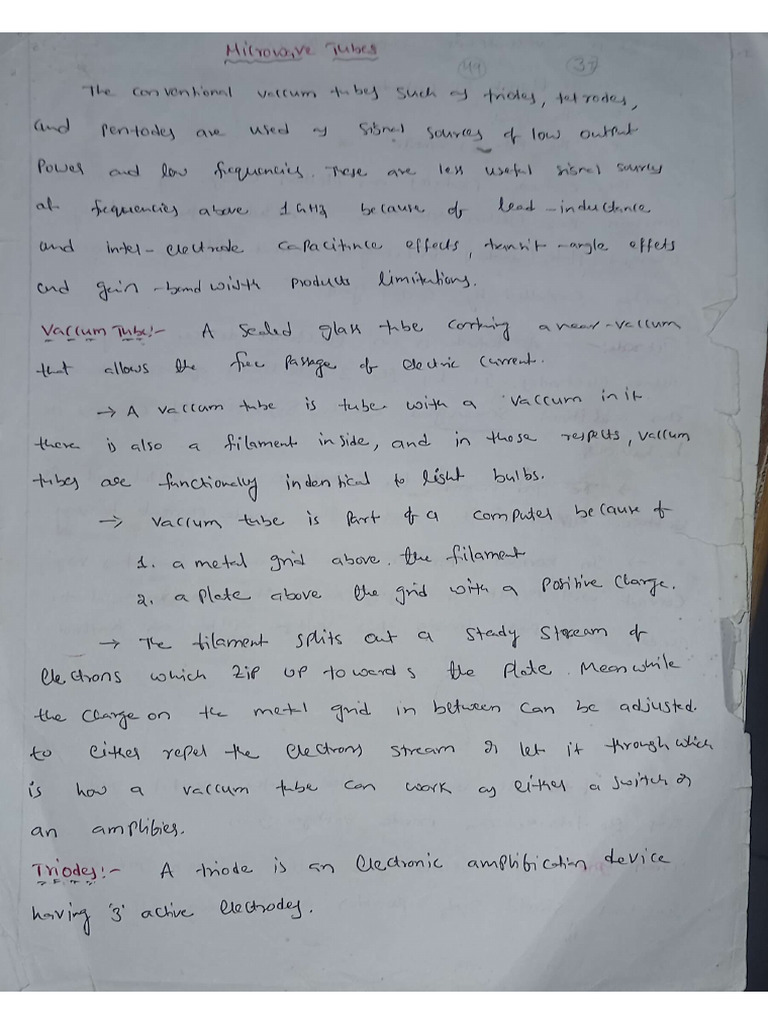 Microwave Tubes
44 37
The conventional vaccum tubes such as triodes, tetrodes,
and pentodes are used as signal sources of low output
Power and low frequencies. These are less useful signal sources
at frequencies above 1 GHz because of lead-inductance
and inter-electrode capacitance effects, transit-angle effets
and gain-band width products limitations.
Vaccum Tube:- A sealed glass tube a near-vaccum
that allows the free passage of electric current.
→ A vaccum tube is tube with a vaccum in it
there is also a filament inside, and in those respects, vaccum
tubes are functionally indentical to light bulbs.
→ vaccum tube is part of a computer because of
1. a metal grid above the filament
2. a plate above the grid with a positive charge.
→ The filament splits out a stady stream of
electrons which zip up towards the plate. Meanwhile
the charge on the metal grid in between can be adjusted.
to either repel the electrons stream or let it through which
is how a vaccum tube can work as either a switch or
an amplifier.
Triodes:- A triode is an electronic amplification device
having '3' active electrodes.